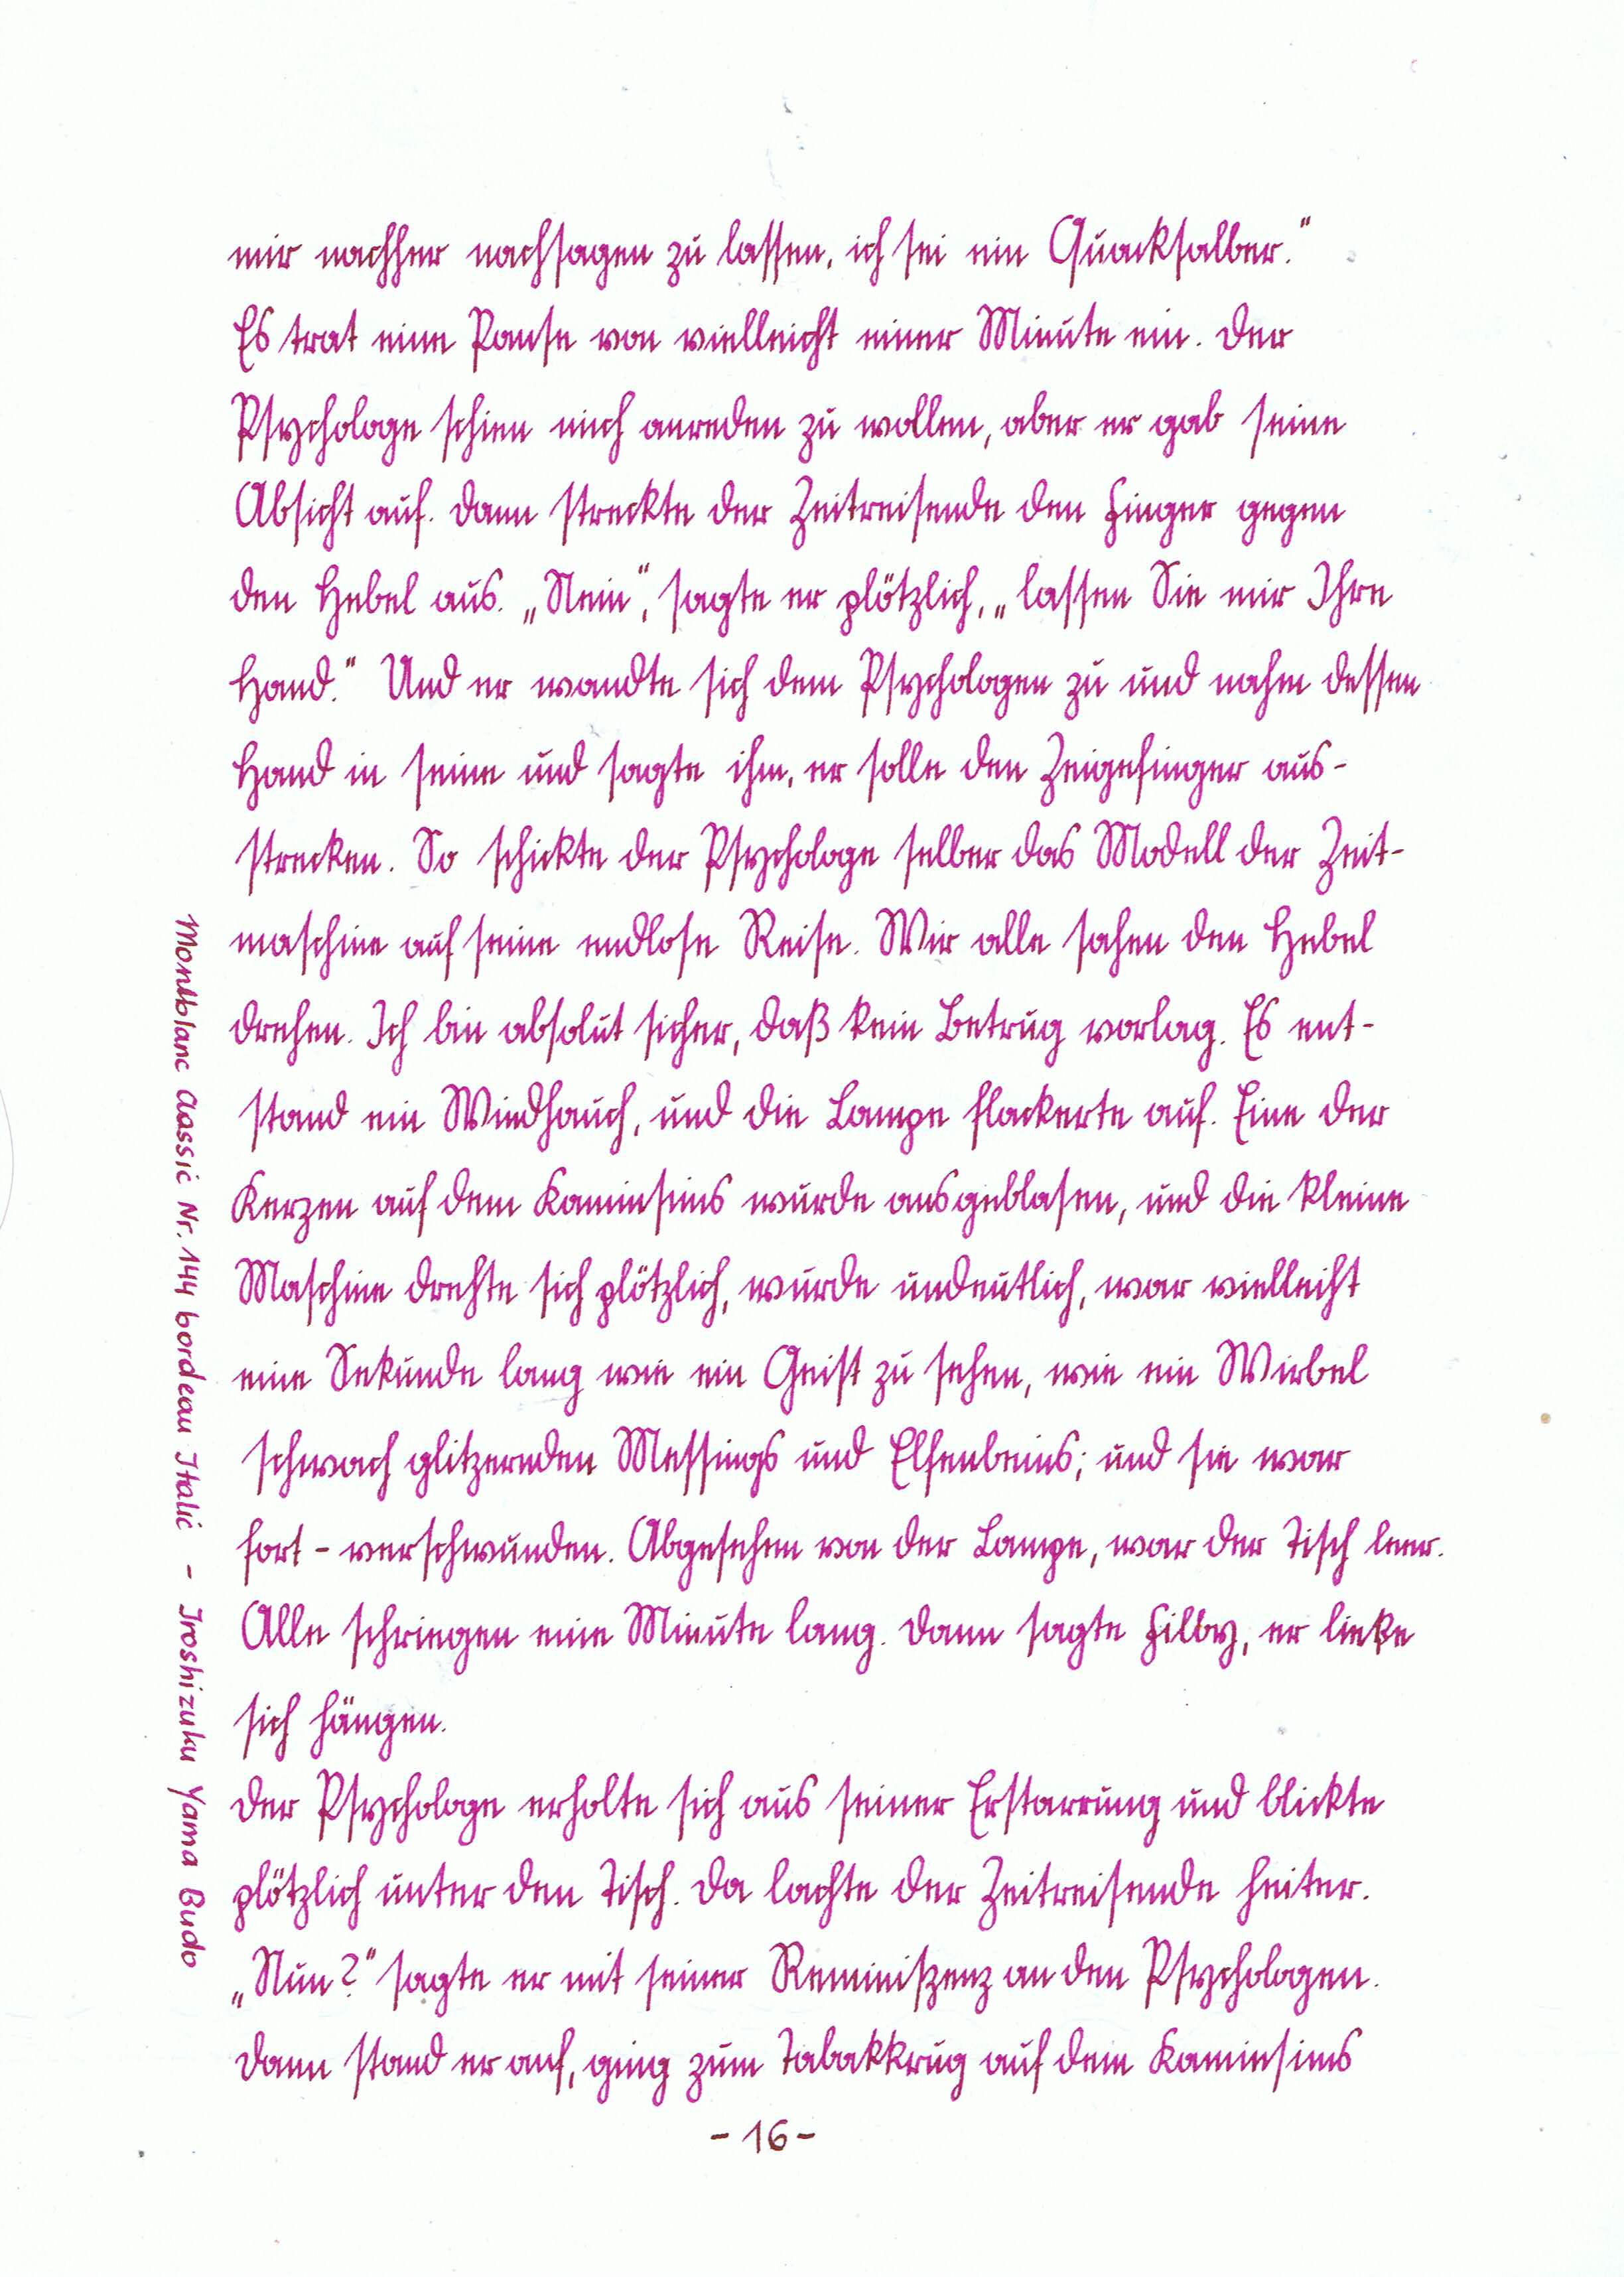 mir nachher nachsagen zu lassen, ich sei ein Quacksalber."
Es trat eine Pause von vielleicht einer Minute ein. Der
Psychologe schien mich anreden zu wollen, aber er gab seine
Absicht auf. Dann streckte der Zeitreisende den Finger gegen
den Hebel aus. „Nein“, sagte er plötzlich, „lassen Sie mir Ihre
Hand.“ Und er wandte sich dem Psychologen zu und nahm dessen
Hand in seine und sagte ihm, er solle den Zeigefinger aus-
strecken. So schickte der Psychologe selber das Modell der Zeit-
maschine auf seine endlose Reise. Wir alle sahen den Hebel
drehen. Ich bin absolut sicher, daß kein Betrug vorlag. Es ent-
stand ein Windhauch, und die Lampe flackerte auf. Eine der
Kerzen auf dem Kaminsims wurde ausgeblasen, und die kleine
Maschine drehte sich plötzlich, wurde undeutlich, war vielleicht
eine Sekunde lang wie ein Geist zu sehen, wie ein Wirbel
schwach glitzernden Messings und Elfenbeins; und sie war
fort - verschwunden. Abgesehen von der Lampe, war der Tisch leer.
Alle schwiegen eine Minute lang. Dann sagte Filby, er ließe
sich hängen.
Der Psychologe erholte sich aus seiner Erstarrung und blickte
plötzlich unter den Tisch. Da lachte der Zeitreisende heiter.
„Nun?“ sagte er mit seiner Reminiszenz an den Psychologen.
Dann stand er auf, ging zum Tabakkrug auf dem Kaminsims
- 16 -
Montblanc Classic Nr. 144 bordeau Italic - Iroshizuku Yama Budo